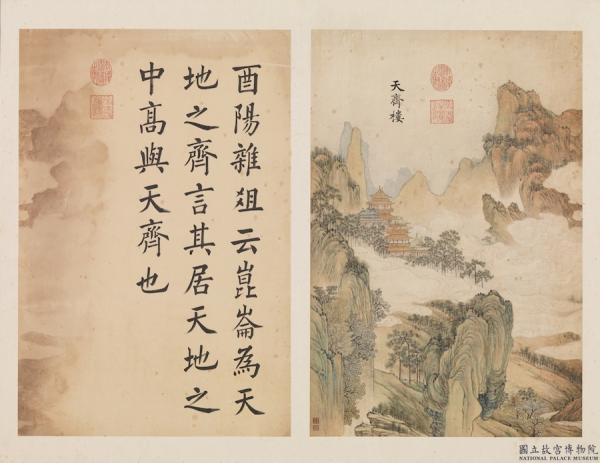 天齊樓
酉陽雜俎云崑崙為天
地之齊言其居天地之
中髙與天齊也
國立故宮博物院
NATIONAL PALACE MUSEUM